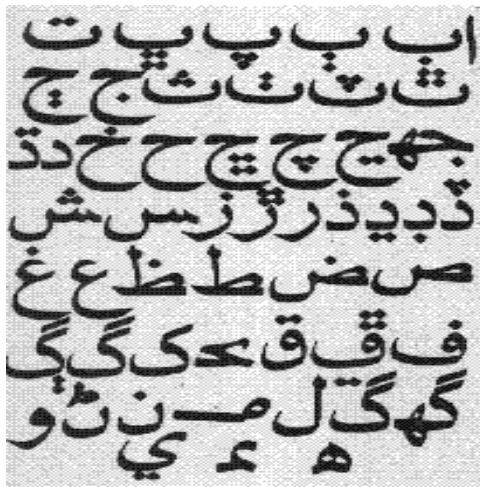 ا ب ٻ پ ڀ ت
ٿ ٽ ٺ ث ج ڄ
جھ ڃ چ ڇ ح خ د ڌ
ڏ ڊ ڍ ذ ر ڙ ز س ش
ص ض ط ظ ع غ
ف ڦ ق ڪ ک گ ڳ
گھ ڱ ل م ن ڻ و
ھ ء ي